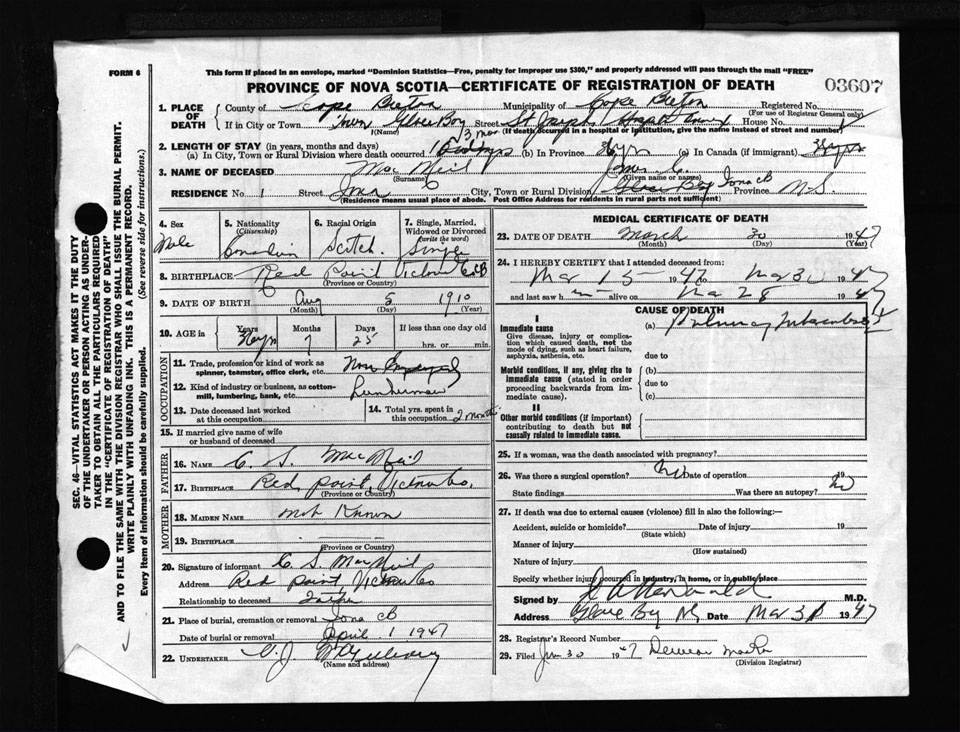 FORM 6
This form if placed in an envelope, marked "Dominion Statistics—Free, penalty for improper use $300," and properly addressed will pass through the mail "FREE"
PROVINCE OF NOVA SCOTIA—CERTIFICATE OF REGISTRATION OF DEATH
03607
1. PLACE OF DEATH
County of Cape Breton Municipality of Cape Breton Registered No.
(For use of Registrar General only)
If in City or Town Town Glace Bay Street St Joseph's Hospital House No.
(Name) (If death occurred in a hospital or institution, give the name instead of street and number)
2. LENGTH OF STAY (in years, months and days)
3 mos
(a) In City, Town or Rural Division where death occurred (b) In Province 36 yrs (c) In Canada (if immigrant) 36 yrs
3. NAME OF DECEASED Mac Neil
(Surname) (Given name or names)
RESIDENCE No. 1 Street Iona City, Town or Rural Division Glace Bay Iona CB Province N.S.
(Residence means usual place of abode. Post Office Address for residents in rural parts not sufficient)
4. Sex
Male
5. Nationality (Citizenship)
Canadian
6. Racial Origin
Scotch
7. Single, Married, Widowed or Divorced (write the word)
Single
8. BIRTHPLACE Red Point Victoria Co CB
(Province or Country)
9. DATE OF BIRTH Aug 5 1910
(Month) (Day) (Year)
10. AGE in
Years Months Days If less than one day old
36 yrs 7 25 hrs. or min.
OCCUPATION
11. Trade, profession or kind of work as spinner, teamster, office clerk, etc. Non Employed
12. Kind of industry or business, as cotton-mill, lumbering, bank, etc. Lumberman
13. Date deceased last worked at this occupation
14. Total yrs. spent in this occupation 2 months
15. If married give name of wife or husband of deceased
FATHER
16. NAME C. S. MacNeil
17. BIRTHPLACE Red Point, Victoria Co.
(Province or Country)
MOTHER
18. MAIDEN NAME not Known
19. BIRTHPLACE
(Province or Country)
20. Signature of informant C. S. MacNeil
Address Red Point, Victoria Co
Relationship to deceased Father
21. Place of burial, cremation or removal Iona CB
Date of burial or removal April 1 1947
22. UNDERTAKER V. J. McGillivary
(Name and address)
MEDICAL CERTIFICATE OF DEATH
23. DATE OF DEATH March 30 1947
(Month) (Day) (Year)
24. I HEREBY CERTIFY that I attended deceased from:
Mar 15 1947 Mar 30 1947
and last saw h im alive on Mar 28 1947
CAUSE OF DEATH
I
Immediate cause
Give disease, injury or complication which caused death, not the mode of dying, such as heart failure, asphyxia, asthenia, etc.
(a) Pulmonary Tuberculosis
due to
Morbid conditions, if any, giving rise to immediate cause (stated in order proceeding backwards from immediate cause).
(b)
due to
(c)
II
Other morbid conditions (if important) contributing to death but not causally related to immediate cause.
25. If a woman, was the death associated with pregnancy?
26. Was there a surgical operation? No Date of operation 19
State findings Was there an autopsy? No
27. If death was due to external causes (violence) fill in also the following:—
Accident, suicide or homicide? Date of injury 19
(State which)
Manner of injury
(How sustained)
Nature of injury
Specify whether injury occurred in industry, in home, or in public place
Signed by M.D.
Address Glace Bay NS Date Mar 31 1947
28. Registrar's Record Number
29. Filed Jun 30 1947
(Division Registrar)
SEC. 46—VITAL STATISTICS ACT MAKES IT THE DUTY
OF THE UNDERTAKER OR PERSON ACTING AS UNDER-
TAKER TO OBTAIN ALL THE PARTICULARS REQUIRED
IN THE "CERTIFICATE OF REGISTRATION OF DEATH"
AND TO FILE THE SAME WITH THE DIVISION REGISTRAR WHO SHALL ISSUE THE BURIAL PERMIT.
WRITE PLAINLY WITH UNFADING INK. THIS IS A PERMANENT RECORD.
Every item of information should be carefully supplied. (See reverse side for instructions.)